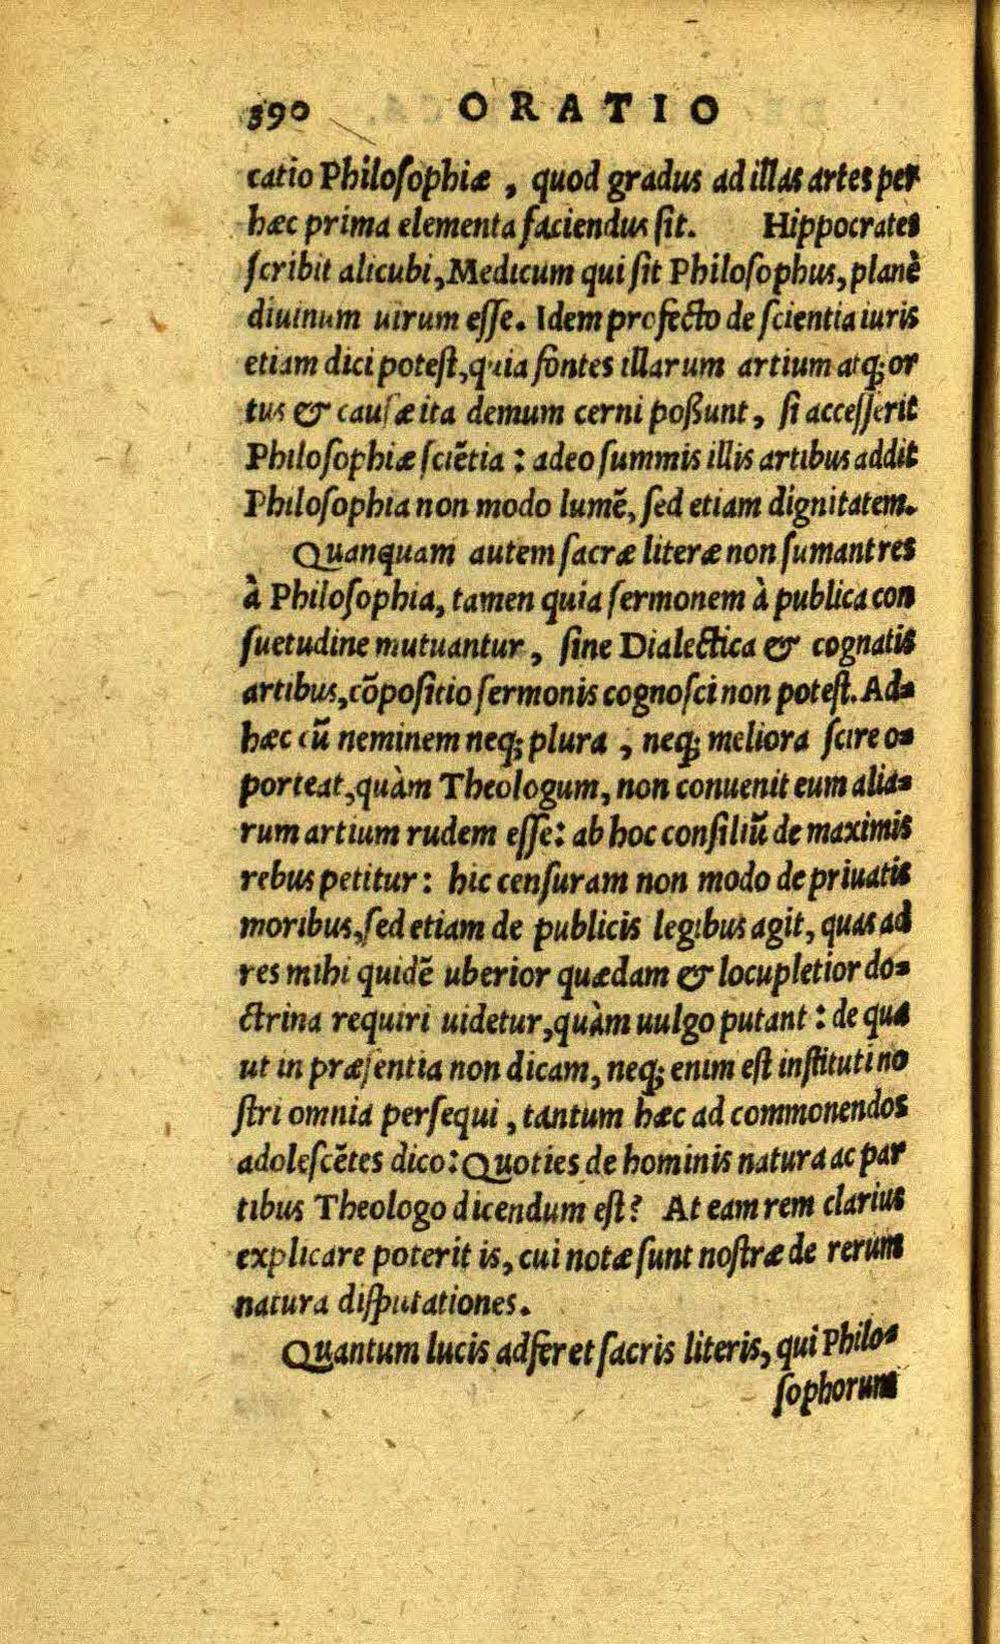 390 ORATIO
catio Philosophiæ, quod gradus ad illas artes per
hæc prima elementa faciendus sit. Hippocrates
scribit alicubi, Medicum qui sit Philosophus, planè
diuinum uirum esse. Idem profecto de scientia iuris
etiam dici potest, quia fontes illarum artium atq; or
tus & causæ ita demum cerni poßunt, si accesserit
Philosophiæ sciẽtia: adeo summis illis artibus addit
Philosophia non modo lumẽ, sed etiam dignitatem.
Quanquam autem sacræ literæ non sumant res
à Philosophia, tamen quia sermonem à publica con
suetudine mutuantur, sine Dialectica & cognatis
artibus, cõpositio sermonis cognosci non potest. Ad-
hæc cũ neminem neq; plura, neq; meliora scire o-
porteat, quàm Theologum, non conuenit eum alia-
rum artium rudem esse: ab hoc consiliũ de maximis
rebus petitur: hic censuram non modo de priuatis
moribus, sed etiam de publicis legibus agit, quas ad
res mihi quidẽ uberior quædam & locupletior do-
ctrina requiri uidetur, quàm uulgo putant: de qua
ut in præsentia non dicam, neq; enim est instituti no
stri omnia persequi, tantum hæc ad commonendos
adolescẽtes dico: Quoties de hominis natura ac par
tibus Theologo dicendum est? At eam rem clarius
explicare poterit is, cui notæ sunt nostræ de rerum
natura disputationes.
Quantum lucis adferet sacris literis, qui Philo-
sophorum